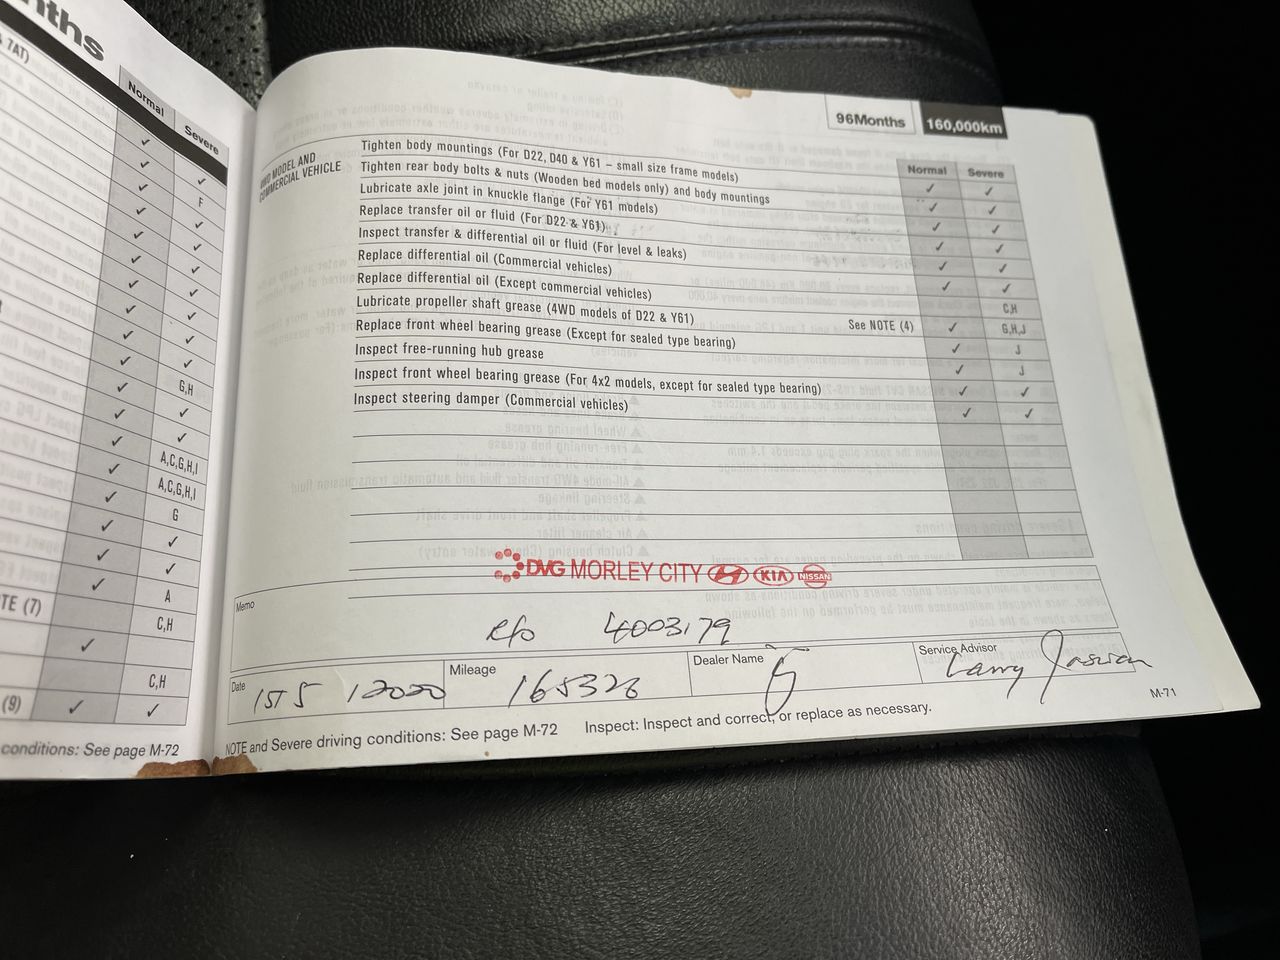 nths
7AT)
Normal
Severe
✓ ✓
✓ F
✓ ✓
✓ ✓
✓ ✓
✓ ✓
✓ ✓
✓ ✓
✓ ✓
✓ ✓
✓ G,H
✓ ✓
✓ ✓
✓ A,C,G,H,I
✓ A,C,G,H,I
✓ G
✓ ✓
✓ ✓
✓ A
C,H
TE (7)
✓
C,H
(9) ✓ ✓
conditions: See page M-72
96Months 160,000km
4WD MODEL AND
COMMERCIAL VEHICLE
Normal Severe
Tighten body mountings (For D22, D40 & Y61 – small size frame models) ✓ ✓
Tighten rear body bolts & nuts (Wooden bed models only) and body mountings ✓ ✓
Lubricate axle joint in knuckle flange (For Y61 models) ✓ ✓
Replace transfer oil or fluid (For D22 & Y61) ✓ ✓
Inspect transfer & differential oil or fluid (For level & leaks) ✓ ✓
Replace differential oil (Commercial vehicles) ✓ ✓
Replace differential oil (Except commercial vehicles) C,H
Lubricate propeller shaft grease (4WD models of D22 & Y61) See NOTE (4) ✓ G,H,J
Replace front wheel bearing grease (Except for sealed type bearing) ✓ J
Inspect free-running hub grease ✓ J
Inspect front wheel bearing grease (For 4x2 models, except for sealed type bearing) ✓ ✓
Inspect steering damper (Commercial vehicles) ✓ ✓
DVG MORLEY CITY KIA NISSAN
Memo
R/O 4003179
Date
Mileage 165326
Dealer Name
Service Advisor Larry
NOTE and Severe driving conditions: See page M-72 Inspect: Inspect and correct, or replace as necessary.
M-71